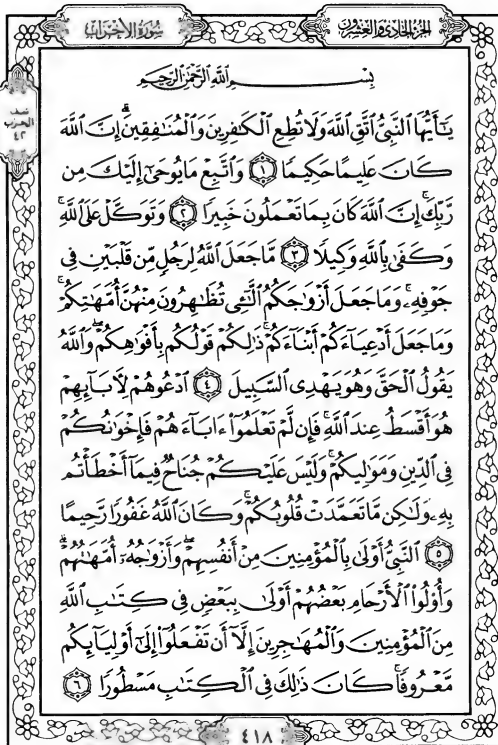 الجزء الحادي والعشرون
سورة الأحزاب
نصف
الحزب
٤٢
بِسْمِ ٱللَّهِ ٱلرَّحْمَٰنِ ٱلرَّحِيمِ
يَـٰٓأَيُّهَا ٱلنَّبِىُّ ٱتَّقِ ٱللَّهَ وَلَا تُطِعِ ٱلْكَـٰفِرِينَ وَٱلْمُنَـٰفِقِينَۗ إِنَّ ٱللَّهَ
كَانَ عَلِيمًا حَكِيمًا ١ وَٱتَّبِعْ مَا يُوحَىٰٓ إِلَيْكَ مِن
رَّبِّكَۚ إِنَّ ٱللَّهَ كَانَ بِمَا تَعْمَلُونَ خَبِيرًا ٢ وَتَوَكَّلْ عَلَى ٱللَّهِۚ
وَكَفَىٰ بِٱللَّهِ وَكِيلًا ٣ مَّا جَعَلَ ٱللَّهُ لِرَجُلٍ مِّن قَلْبَيْنِ فِى
جَوْفِهِۦۚ وَمَا جَعَلَ أَزْوَٰجَكُمُ ٱلَّـٰٓـِٔى تُظَـٰهِرُونَ مِنْهُنَّ أُمَّهَـٰتِكُمْۚ
وَمَا جَعَلَ أَدْعِيَآءَكُمْ أَبْنَآءَكُمْۚ ذَٰلِكُمْ قَوْلُكُم بِأَفْوَٰهِكُمْۖ وَٱللَّهُ
يَقُولُ ٱلْحَقَّ وَهُوَ يَهْدِى ٱلسَّبِيلَ ٤ ٱدْعُوهُمْ لِـَٔابَآئِهِمْ
هُوَ أَقْسَطُ عِندَ ٱللَّهِۚ فَإِن لَّمْ تَعْلَمُوٓا۟ ءَابَآءَهُمْ فَإِخْوَٰنُكُمْ
فِى ٱلدِّينِ وَمَوَٰلِيكُمْۚ وَلَيْسَ عَلَيْكُمْ جُنَاحٌ فِيمَآ أَخْطَأْتُم
بِهِۦ وَلَـٰكِن مَّا تَعَمَّدَتْ قُلُوبُكُمْۚ وَكَانَ ٱللَّهُ غَفُورًا رَّحِيمًا
٥ ٱلنَّبِىُّ أَوْلَىٰ بِٱلْمُؤْمِنِينَ مِنْ أَنفُسِهِمْۖ وَأَزْوَٰجُهُۥٓ أُمَّهَـٰتُهُمْۗ
وَأُو۟لُوا۟ ٱلْأَرْحَامِ بَعْضُهُمْ أَوْلَىٰ بِبَعْضٍ فِى كِتَـٰبِ ٱللَّهِ
مِنَ ٱلْمُؤْمِنِينَ وَٱلْمُهَـٰجِرِينَ إِلَّآ أَن تَفْعَلُوٓا۟ إِلَىٰٓ أَوْلِيَآئِكُم
مَّعْرُوفًاۚ كَانَ ذَٰلِكَ فِى ٱلْكِتَـٰبِ مَسْطُورًا ٦
٤١٨